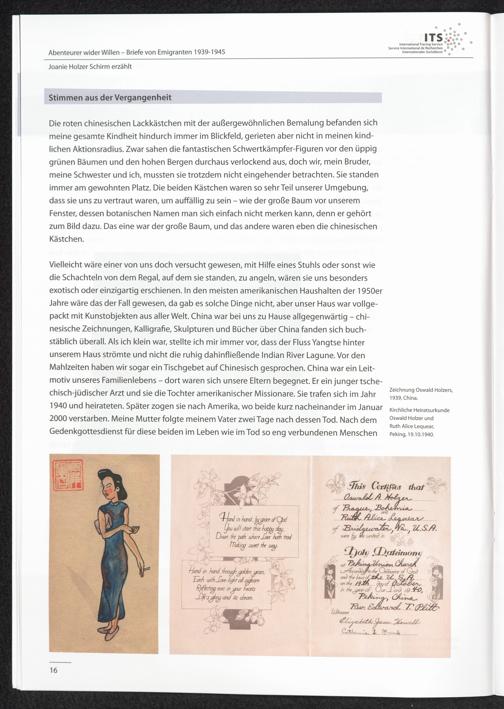 Abenteurer wider Willen – Briefe von Emigranten 1939-1945
Joanie Holzer Schirm erzählt
ITS
International Tracing Service
Service International de Recherches
Internationaler Suchdienst
Stimmen aus der Vergangenheit
Die roten chinesischen Lackkästchen mit der außergewöhnlichen Bemalung befanden sich
meine gesamte Kindheit hindurch immer im Blickfeld, gerieten aber nicht in meinen kind-
lichen Aktionsradius. Zwar sahen die fantastischen Schwertkämpfer-Figuren vor den üppig
grünen Bäumen und den hohen Bergen durchaus verlockend aus, doch wir, mein Bruder,
meine Schwester und ich, mussten sie trotzdem nicht eingehender betrachten. Sie standen
immer am gewohnten Platz. Die beiden Kästchen waren so sehr Teil unserer Umgebung,
dass sie uns zu vertraut waren, um auffällig zu sein – wie der große Baum vor unserem
Fenster, dessen botanischen Namen man sich einfach nicht merken kann, denn er gehört
zum Bild dazu. Das eine war der große Baum, und das andere waren eben die chinesischen
Kästchen.
Vielleicht wäre einer von uns doch versucht gewesen, mit Hilfe eines Stuhls oder sonst wie
die Schachteln von dem Regal, auf dem sie standen, zu angeln, wären sie uns besonders
exotisch oder einzigartig erschienen. In den meisten amerikanischen Haushalten der 1950er
Jahre wäre das der Fall gewesen, da gab es solche Dinge nicht, aber unser Haus war vollge-
packt mit Kunstobjekten aus aller Welt. China war bei uns zu Hause allgegenwärtig – chi-
nesische Zeichnungen, Kalligrafie, Skulpturen und Bücher über China fanden sich buch-
stäblich überall. Als ich klein war, stellte ich mir immer vor, dass der Fluss Yangtse hinter
unserem Haus strömte und nicht die ruhig dahinfließende Indian River Lagune. Vor den
Mahlzeiten haben wir sogar ein Tischgebet auf Chinesisch gesprochen. China war ein Leit-
motiv unseres Familienlebens – dort waren sich unsere Eltern begegnet. Er ein junger tsche-
chisch-jüdischer Arzt und sie die Tochter amerikanischer Missionare. Sie trafen sich im Jahr
1940 und heirateten. Später zogen sie nach Amerika, wo beide kurz nacheinander im Januar
2000 verstarben. Meine Mutter folgte meinem Vater zwei Tage nach dessen Tod. Nach dem
Gedenkgottesdienst für diese beiden im Leben wie im Tod so eng verbundenen Menschen
Zeichnung Oswald Holzers,
1939, China.
Kirchliche Heiratsurkunde
Oswald Holzer und
Ruth Alice Lequear,
Peking, 19.10.1940.
Hand in hand, by grace of God
You will start this happy day,
Down the path where Love hath trod
Making sweet the way.
Hand in hand through golden years,
Each with Love light all aglow
Reflecting one in your hearts
Life's glory and its dream.
This Certifies that
Oswald A. Holzer
of Prague, Bohemia
Ruth Alice Lequear
of Bridgewater, Va., U.S.A.
were by me united in
Holy Matrimony
at Peking Union Church
According to the Ordinance of God
and the laws of the U.S.A.
on the 19th day of October
in the year of Our Lord 1940,
Peking, China
Rev. Edward T. Plitt
Witnesses
Elizabeth Jean
16